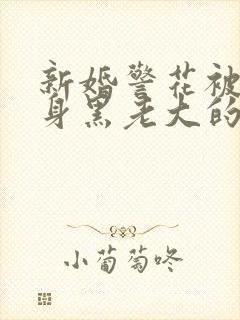 新婚警花被
身黑老大的
小葡萄咚